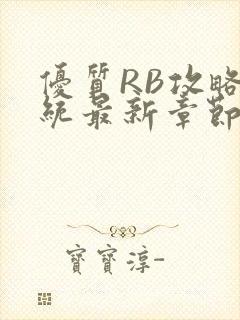 優質RB攻略
統最新章節
寶寶淳-